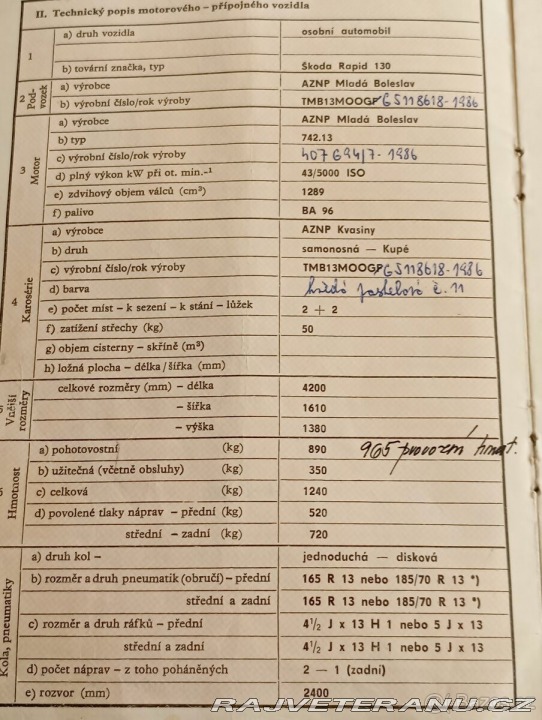 II. Technický popis motorového – přípojného vozidla
1 a) druh vozidla osobní automobil
b) tovární značka, typ Škoda Rapid 130
2 Podvozek a) výrobce AZNP Mladá Boleslav
b) výrobní číslo/rok výroby TMB13MOOGP G5118618-1986
3 Motor a) výrobce AZNP Mladá Boleslav
b) typ 742.13
c) výrobní číslo/rok výroby 407694/7-1986
d) plný výkon kW při ot. min.-¹ 43/5000 ISO
e) zdvihový objem válců (cm³) 1289
f) palivo BA 96
4 Karosérie a) výrobce AZNP Kvasiny
b) druh samonosná — Kupé
c) výrobní číslo/rok výroby TMB13MOOGP G5118618-1986
d) barva hnědá pastelová č. 11
e) počet míst – k sezení – k stání – lůžek 2 + 2
f) zatížení střechy (kg) 50
g) objem cisterny – skříně (m³)
h) ložná plocha – délka/šířka (mm)
Vnější rozměry celkové rozměry (mm) – délka 4200
– šířka 1610
– výška 1380
Hmotnost a) pohotovostní (kg) 890 965 provozní hmot.
b) užitečná (včetně obsluhy) (kg) 350
c) celková (kg) 1240
d) povolené tlaky náprav – přední (kg) 520
střední – zadní (kg) 720
Kola, pneumatiky a) druh kol – jednoduchá — disková
b) rozměr a druh pneumatik (obručí) – přední 165 R 13 nebo 185/70 R 13 *)
střední a zadní 165 R 13 nebo 185/70 R 13 *)
c) rozměr a druh ráfků – přední 4½ J x 13 H 1 nebo 5 J x 13
střední a zadní 4½ J x 13 H 1 nebo 5 J x 13
d) počet náprav – z toho poháněných 2 — 1 (zadní)
e) rozvor (mm) 2400
RAJVETERANU.CZ